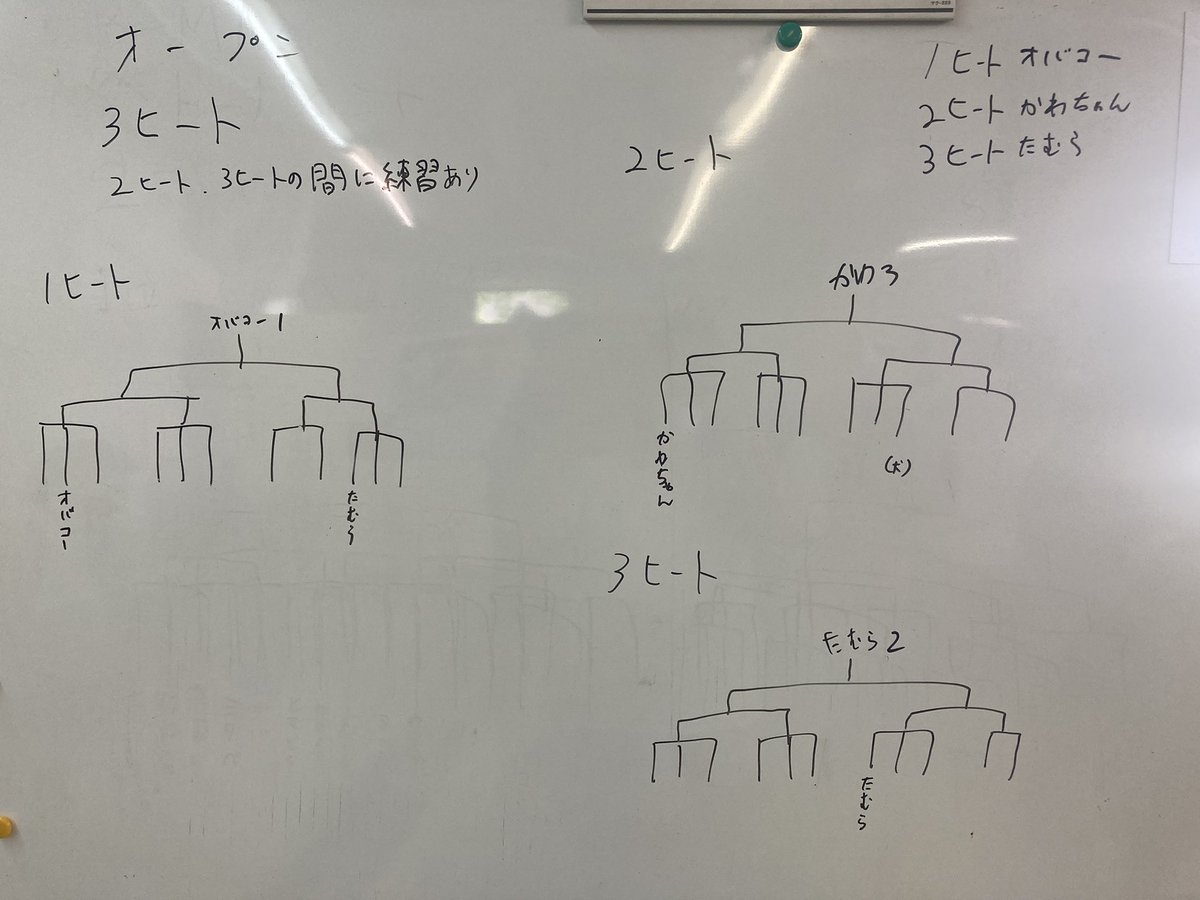 オープン
3ヒート
2ヒート、3ヒートの間に練習あり
1ヒート オバコー
2ヒート かわちゃん
3ヒート たむら
1ヒート
オバコー1
オバコー
たむら
2ヒート
かわ3
かわちゃん
3ヒート
たむら2
たむら